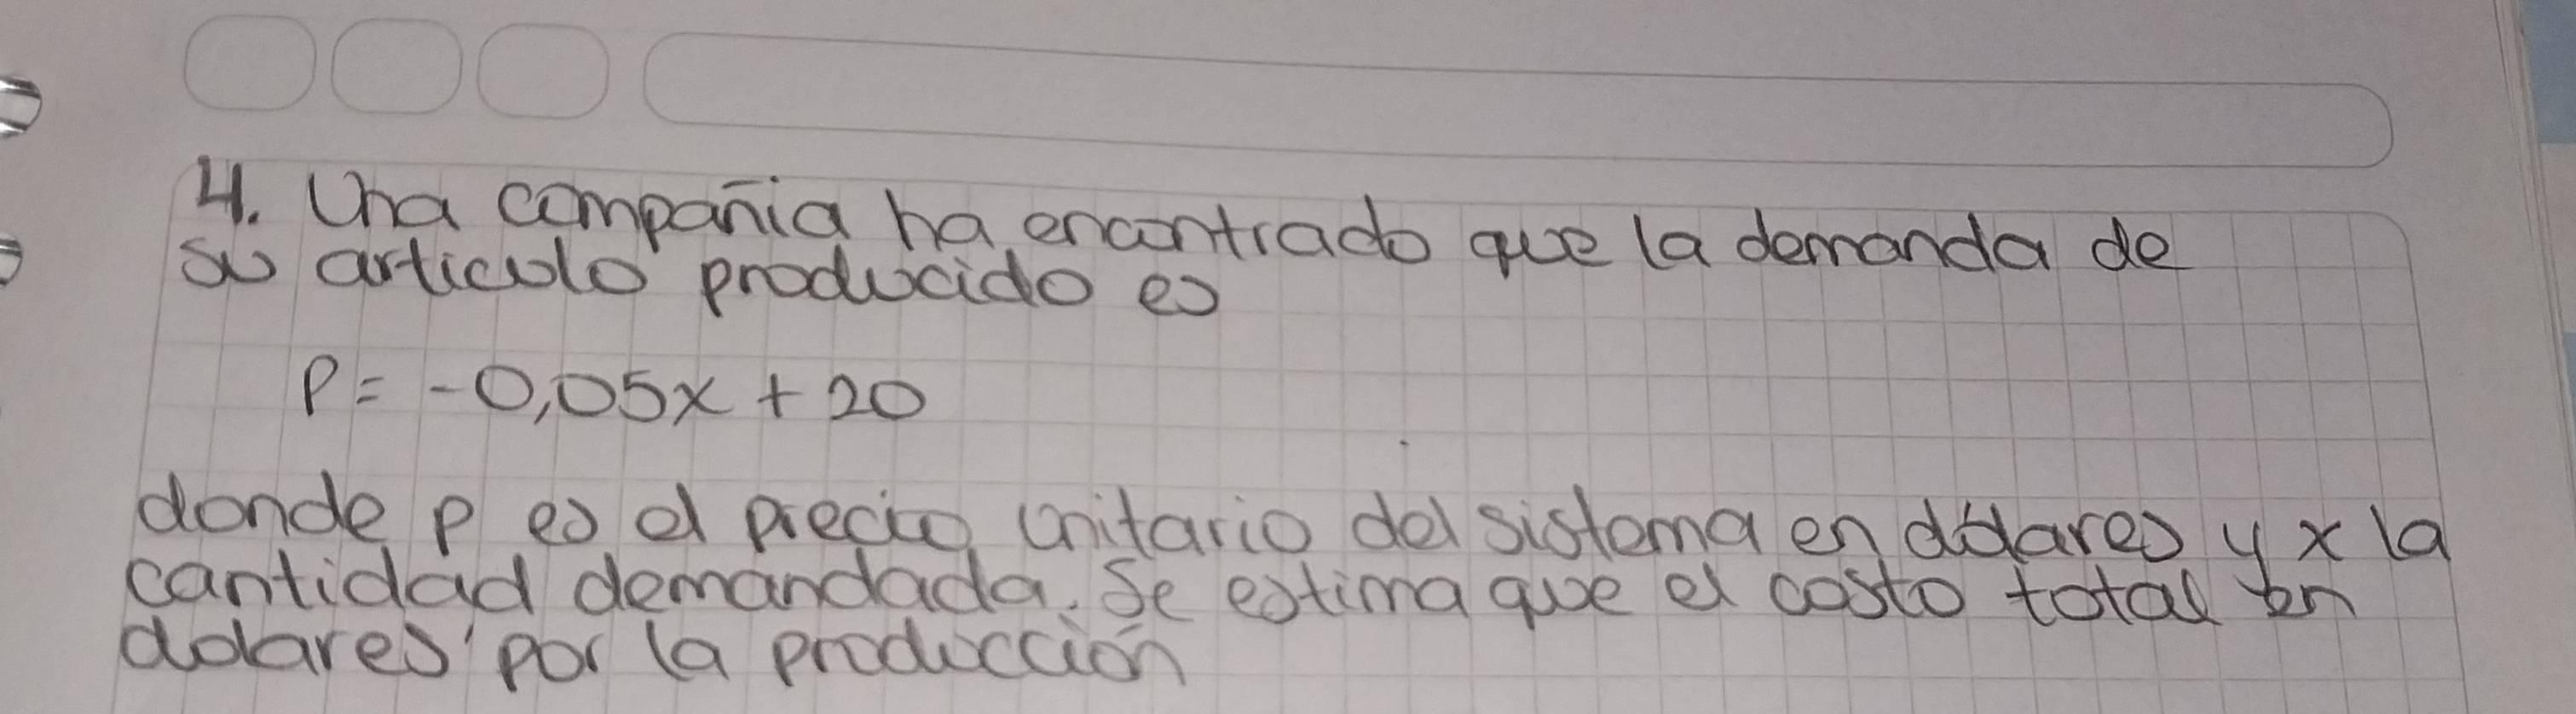 4. Una compañia ha encontrado que la demanda de
su articulo producido es
P = -0,05x + 20
donde p es el precio unitario del sistema en dólares y x la
cantidad demandada. Se estima que el costo total en
dolares por la producción